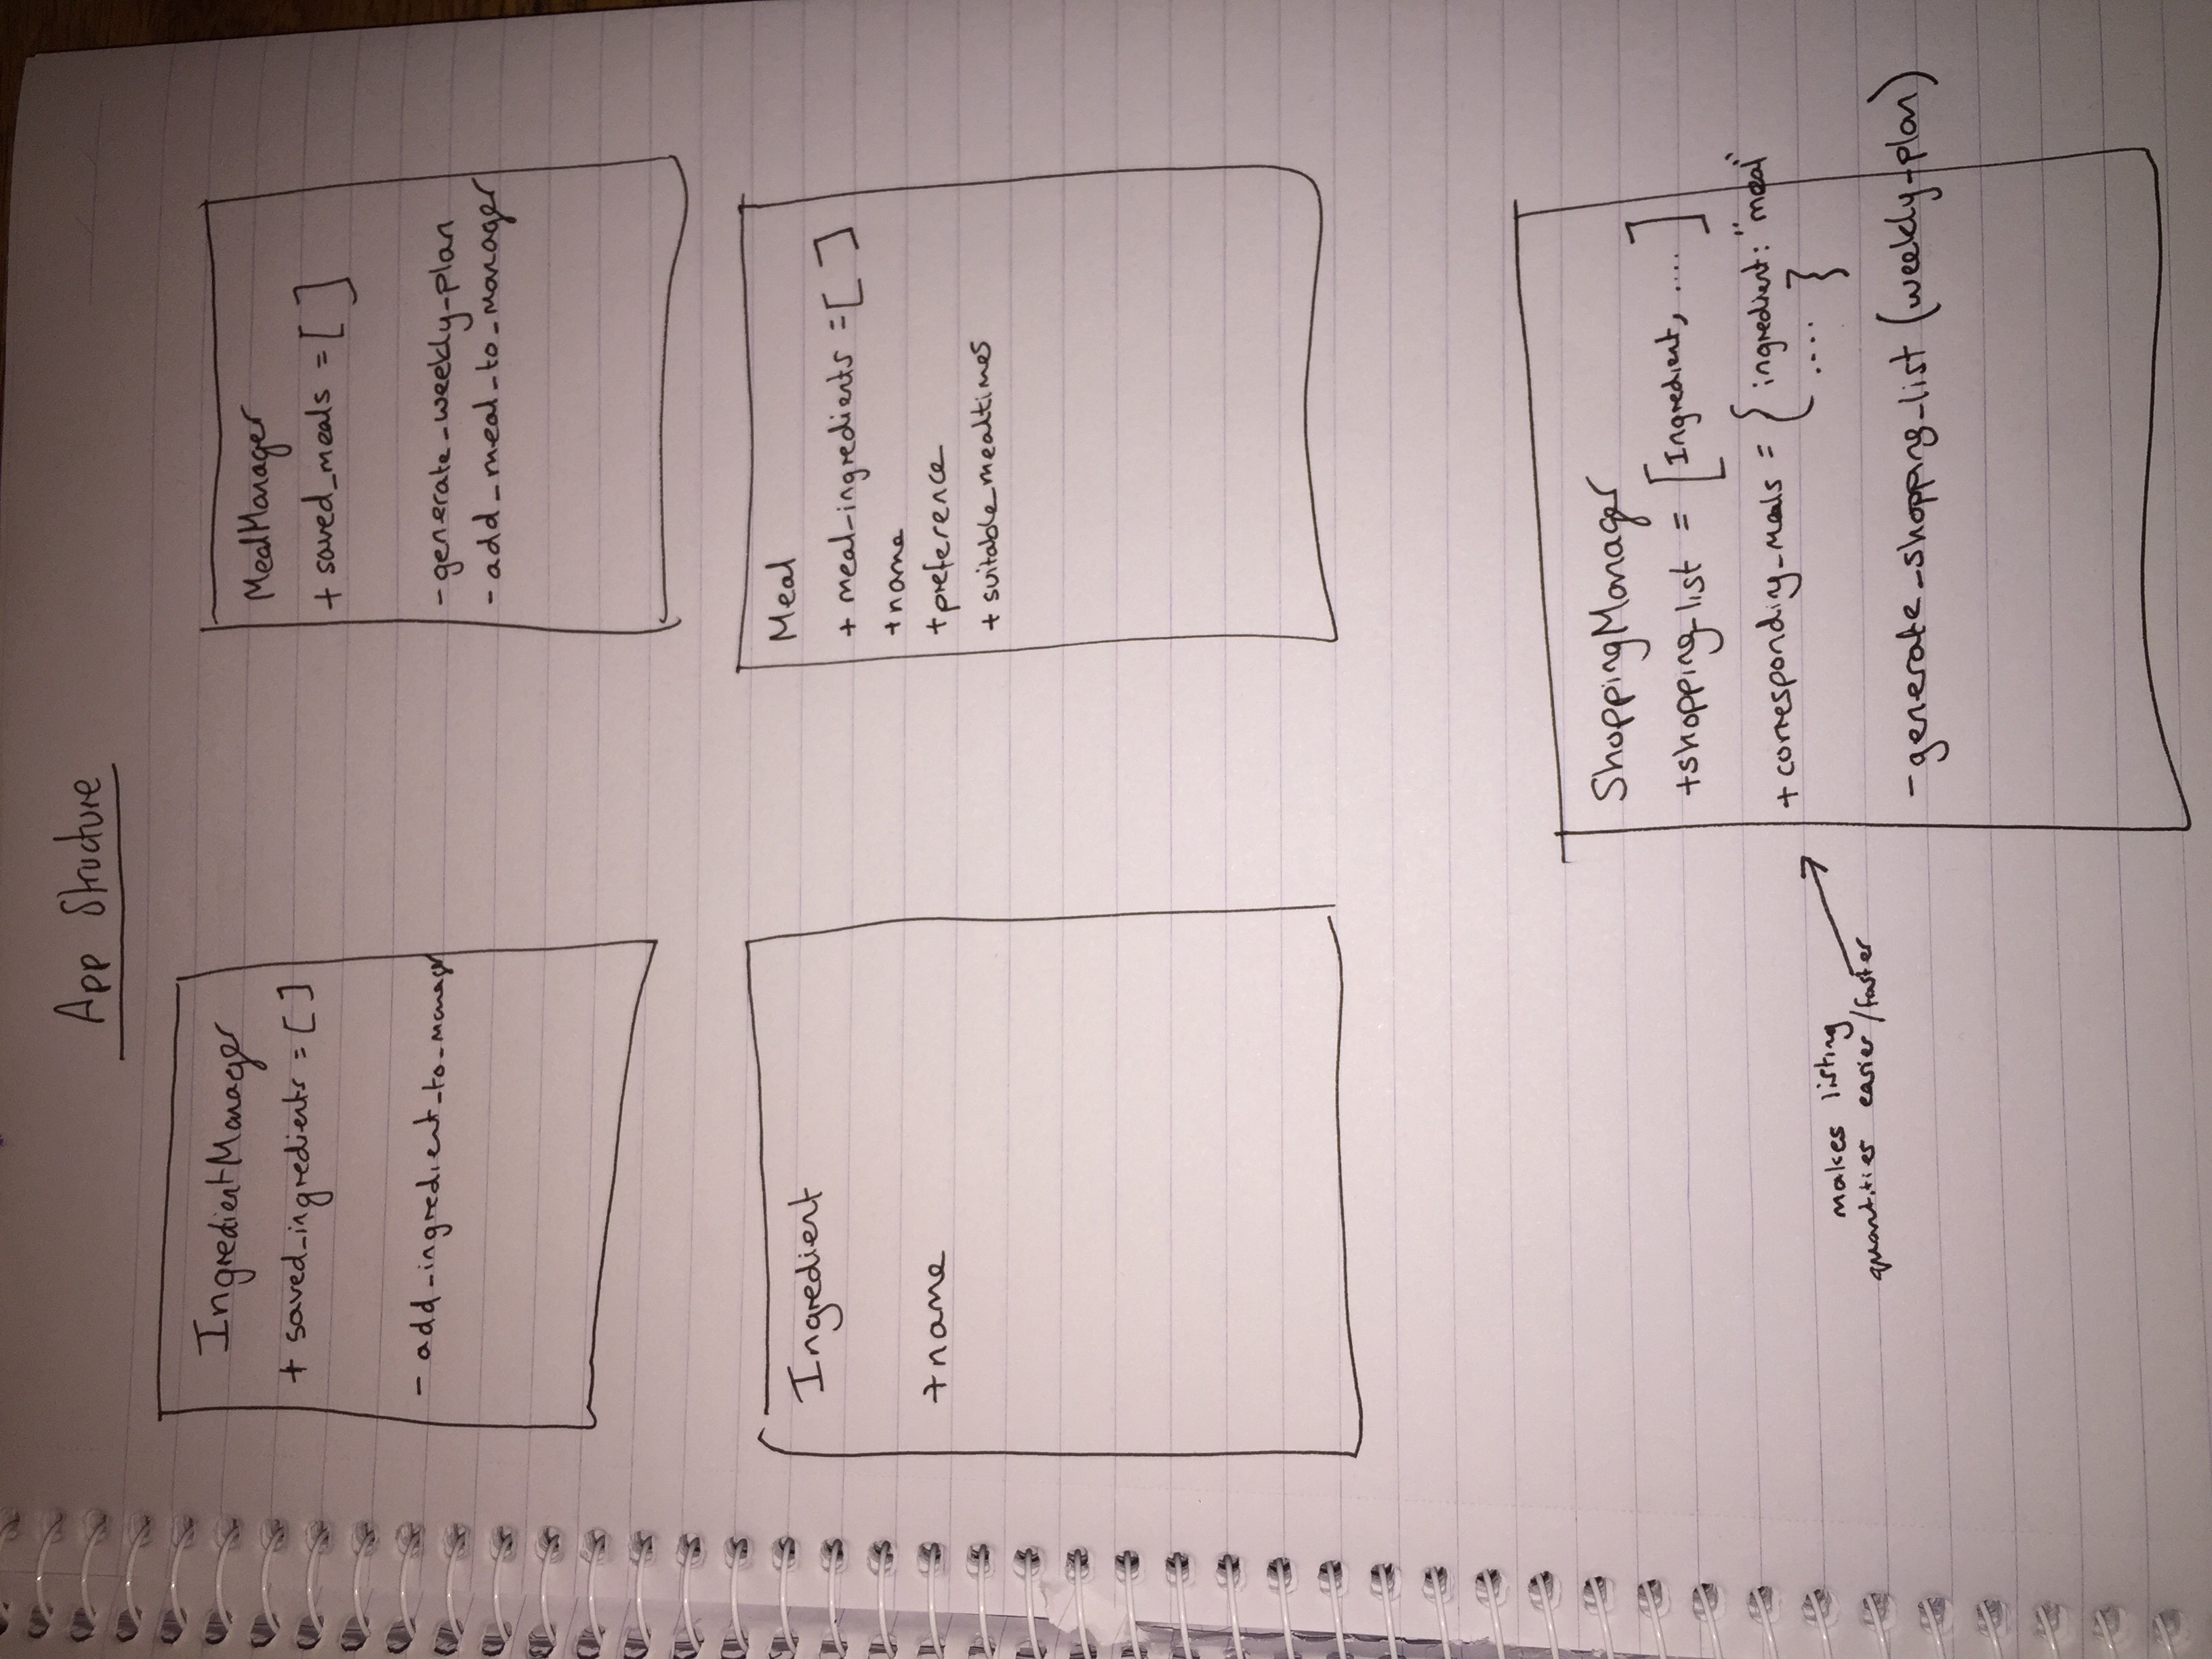 App Structure
IngredientManager
+ saved_ingredients = [ ]
- add_ingredient_to_manager
MealManager
+ saved_meals = [ ]
- generate_weekly_plan
- add_meal_to_manager
Ingredient
+ name
Meal
+ meal_ingredients = [ ]
+ name
+ preference
+ suitable_mealtimes
ShoppingManager
+ shopping_list = [Ingredient, .... ]
+ corresponding_meals = { ingredient: "meal"
.... }
makes listing
quantities easier/faster
- generate_shopping_list (weekly_plan)